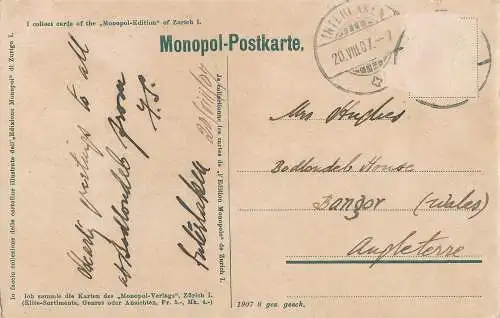 I collect cards of the „Monopol-Edition“ of Zurich I.
Monopol-Postkarte.
INTERLAKEN
20.VIII.07.-7
Io faccio collezioni delle cartoline illustrate dell'„Edizione Monopol“ di Zurigo I.
greetings to all
at Bodlondeb from
Interlaken
20/viii/07
Je collectionne les cartes de „l'Edition Monopole“ de Zurich I.
Mrs Hughes
Bodlondeb House
Bangor (Wales)
Angleterre
Ich sammle die Karten des „Monopol-Verlags“, Zürich I.
(Elite-Sortiments, Genres oder Ansichten, Fr. 5.-, Mk. 4.-)
1907 6 gen. gesch.